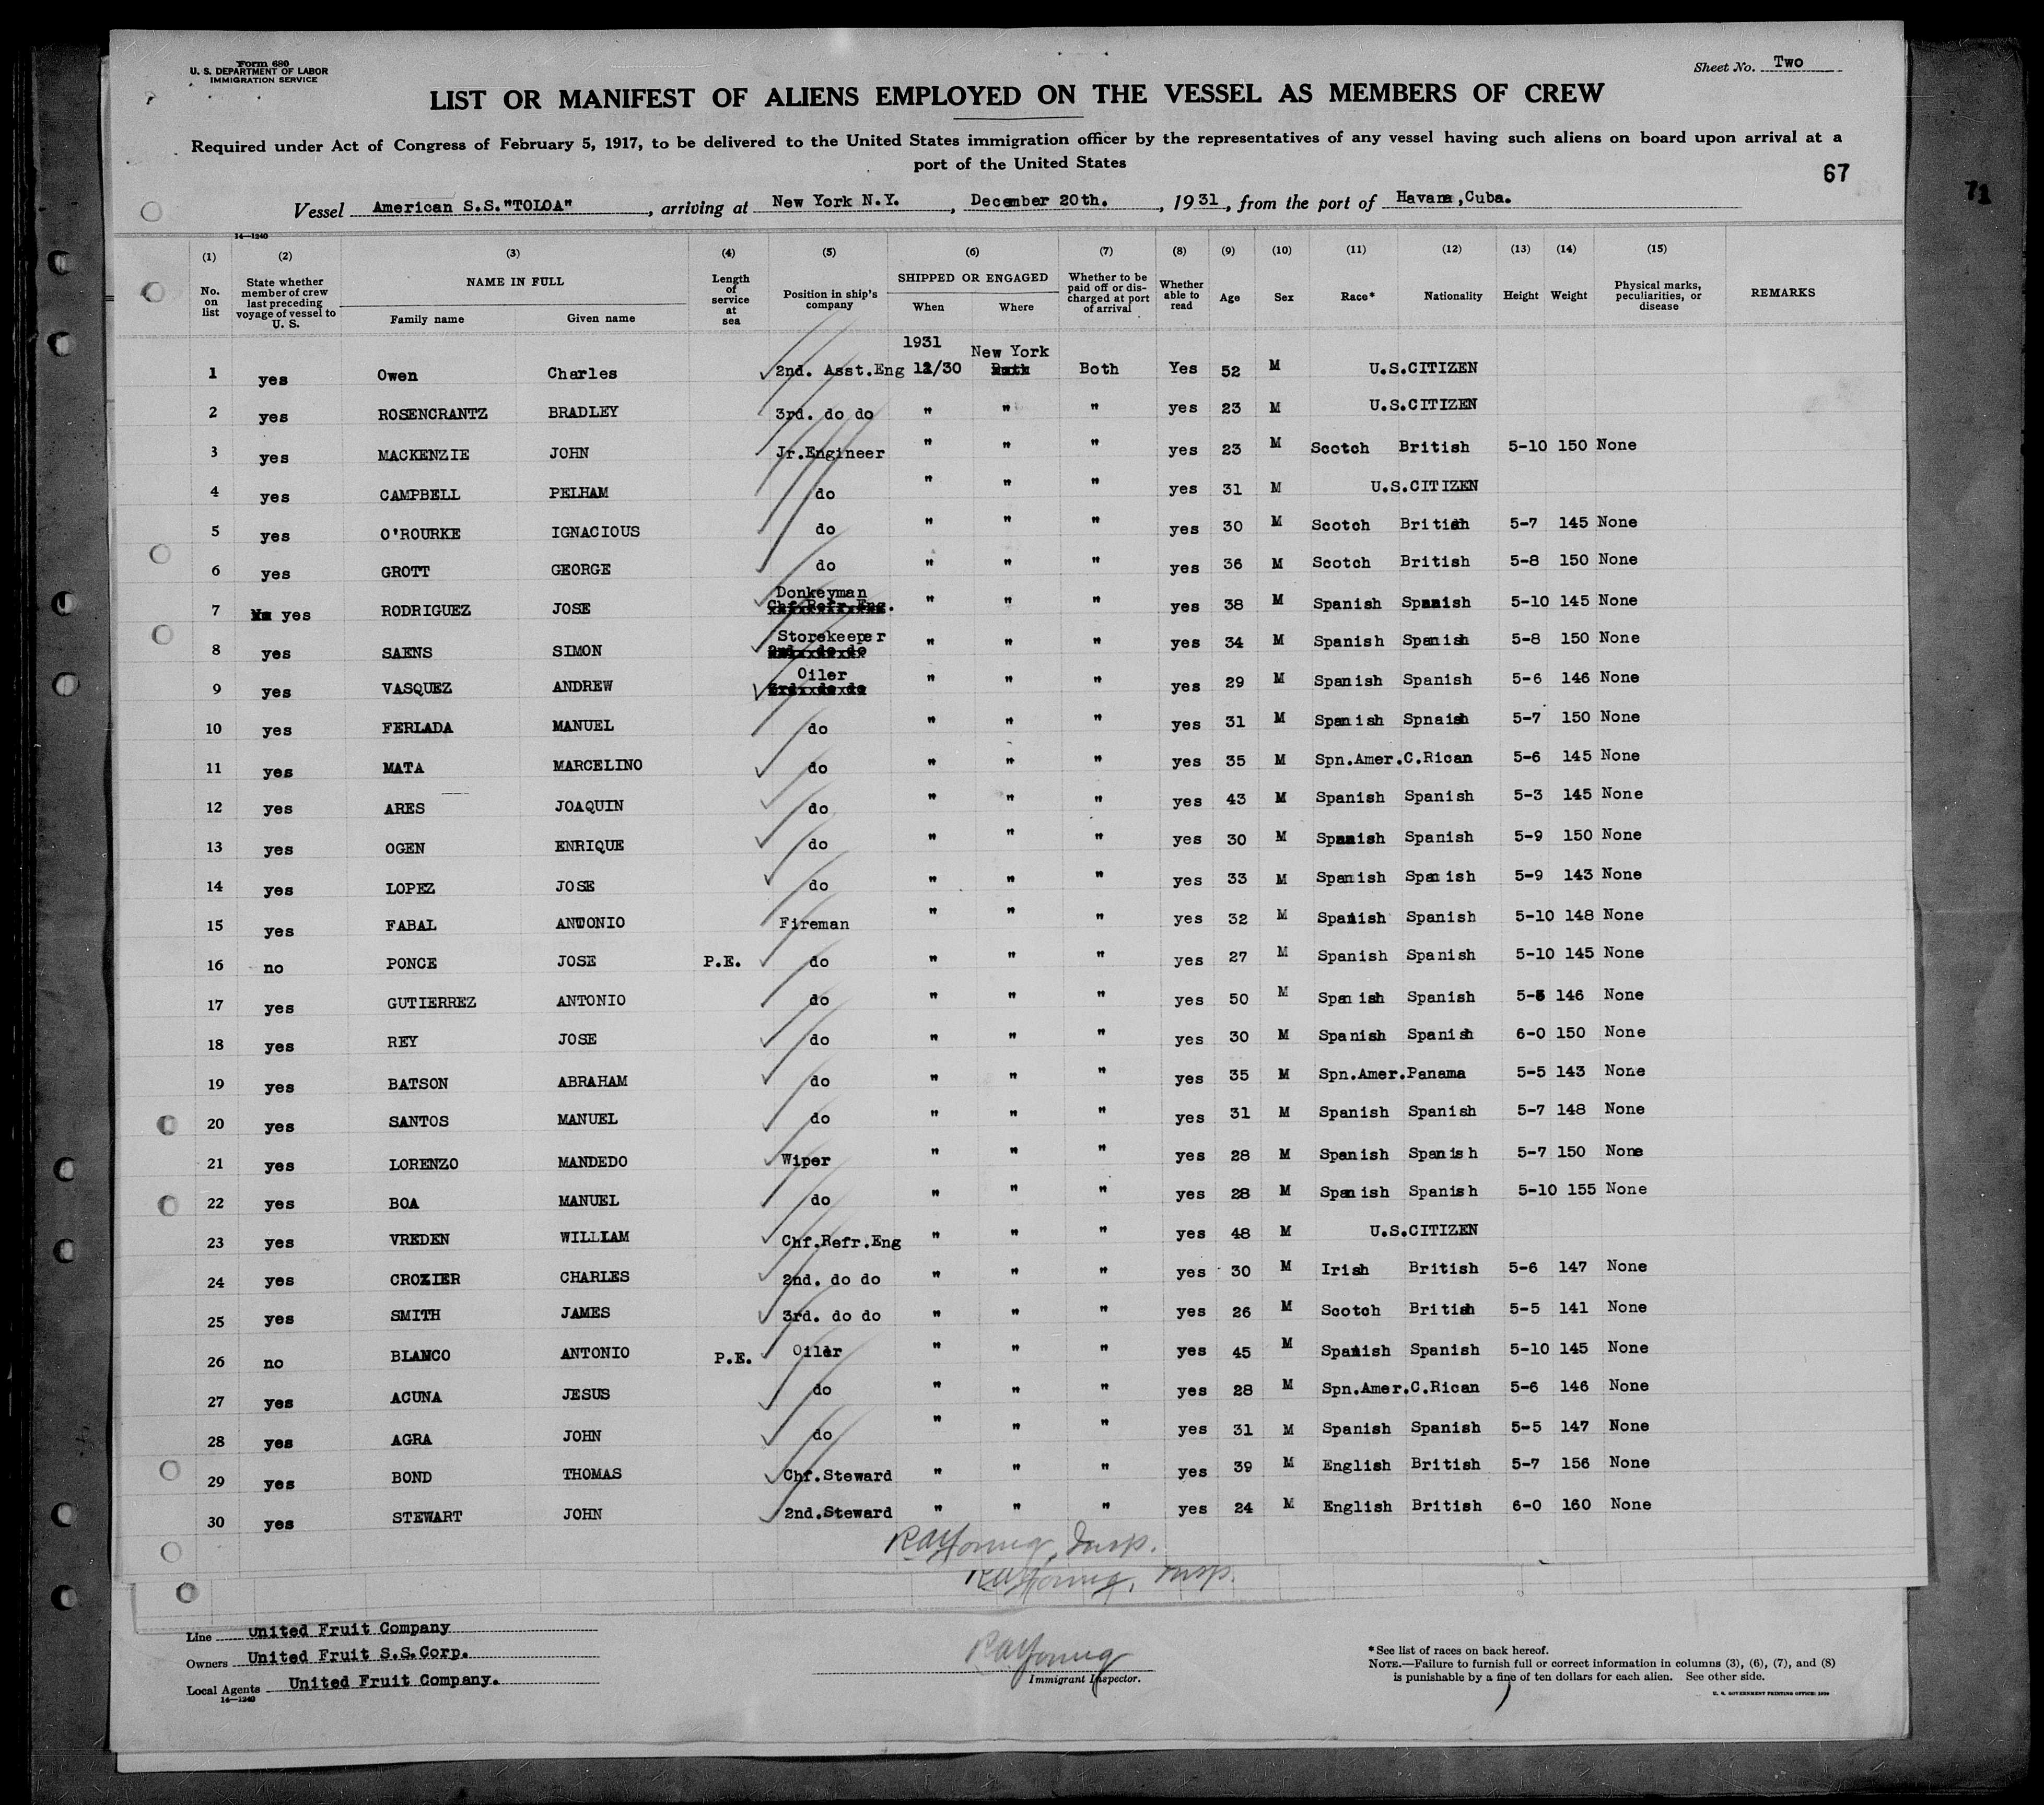 Form 680
U. S. DEPARTMENT OF LABOR
IMMIGRATION SERVICE
Sheet No. Two
LIST OR MANIFEST OF ALIENS EMPLOYED ON THE VESSEL AS MEMBERS OF CREW
Required under Act of Congress of February 5, 1917, to be delivered to the United States immigration officer by the representatives of any vessel having such aliens on board upon arrival at a
port of the United States
67
71
Vessel American S.S."TOLOA", arriving at New York N.Y., December 20th., 1931, from the port of Havana,Cuba.
14—1240
(1) (2) (3) (4) (5) (6) (7) (8) (9) (10) (11) (12) (13) (14) (15)
No. on list
State whether member of crew last preceding voyage of vessel to U. S.
NAME IN FULL
Family name
Given name
Length of service at sea
Position in ship's company
SHIPPED OR ENGAGED
When
Where
Whether to be paid off or discharged at port of arrival
Whether able to read
Age
Sex
Race*
Nationality
Height
Weight
Physical marks, peculiarities, or disease
REMARKS
1931
New York
1 yes Owen Charles 2nd. Asst.Eng 12/30 Both Yes 52 M U.S.CITIZEN
2 yes ROSENCRANTZ BRADLEY 3rd. do do " " " yes 23 M U.S.CITIZEN
3 yes MACKENZIE JOHN Jr.Engineer " " " yes 23 M Scotch British 5-10 150 None
4 yes CAMPBELL PELHAM do " " " yes 31 M U.S.CITIZEN
5 yes O'ROURKE IGNACIOUS do " " " yes 30 M Scotch British 5-7 145 None
6 yes GROTT GEORGE do " " " yes 36 M Scotch British 5-8 150 None
7 yes RODRIGUEZ JOSE Donkeyman Chf.Refr.Eng. " " " yes 38 M Spanish Spanish 5-10 145 None
8 yes SAENS SIMON Storekeeper 2nd. do do " " " yes 34 M Spanish Spanish 5-8 150 None
9 yes VASQUEZ ANDREW Oiler 3rd. do do " " " yes 29 M Spanish Spanish 5-6 146 None
10 yes FERLADA MANUEL do " " " yes 31 M Spanish Spnaish 5-7 150 None
11 yes MATA MARCELINO do " " " yes 35 M Spn.Amer.C.Rican 5-6 145 None
12 yes ARES JOAQUIN do " " " yes 43 M Spanish Spanish 5-3 145 None
13 yes OGEN ENRIQUE do " " " yes 30 M Spanish Spanish 5-9 150 None
14 yes LOPEZ JOSE do " " " yes 33 M Spanish Spanish 5-9 143 None
15 yes FABAL ANTONIO Fireman " " " yes 32 M Spanish Spanish 5-10 148 None
16 no PONCE JOSE P.E. do " " " yes 27 M Spanish Spanish 5-10 145 None
17 yes GUTIERREZ ANTONIO do " " " yes 50 M Spanish Spanish 5-5 146 None
18 yes REY JOSE do " " " yes 30 M Spanish Spanish 6-0 150 None
19 yes BATSON ABRAHAM do " " " yes 35 M Spn.Amer.Panama 5-5 143 None
20 yes SANTOS MANUEL do " " " yes 31 M Spanish Spanish 5-7 148 None
21 yes LORENZO MANDEDO Wiper " " " yes 28 M Spanish Spanish 5-7 150 None
22 yes BOA MANUEL do " " " yes 28 M Spanish Spanish 5-10 155 None
23 yes VREDEN WILLIAM Chf.Refr.Eng " " " yes 48 M U.S.CITIZEN
24 yes CROZIER CHARLES 2nd. do do " " " yes 30 M Irish British 5-6 147 None
25 yes SMITH JAMES 3rd. do do " " " yes 26 M Scotch British 5-5 141 None
26 no BLANCO ANTONIO P.E. Oiler " " " yes 45 M Spanish Spanish 5-10 145 None
27 yes ACUNA JESUS do " " " yes 28 M Spn.Amer.C.Rican 5-6 146 None
28 yes AGRA JOHN do " " " yes 31 M Spanish Spanish 5-5 147 None
29 yes BOND THOMAS Chf.Steward " " " yes 39 M English British 5-7 156 None
30 yes STEWART JOHN 2nd.Steward " " " yes 24 M English British 6-0 160 None
RAYoung, Insp.
RAYoung, Insp.
Line United Fruit Company
Owners United Fruit S.S.Corp.
Local Agents United Fruit Company.
14—1240
RAYoung
Immigrant Inspector.
* See list of races on back hereof.
NOTE.—Failure to furnish full or correct information in columns (3), (6), (7), and (8)
is punishable by a fine of ten dollars for each alien. See other side.
U. S. GOVERNMENT PRINTING OFFICE: 1929